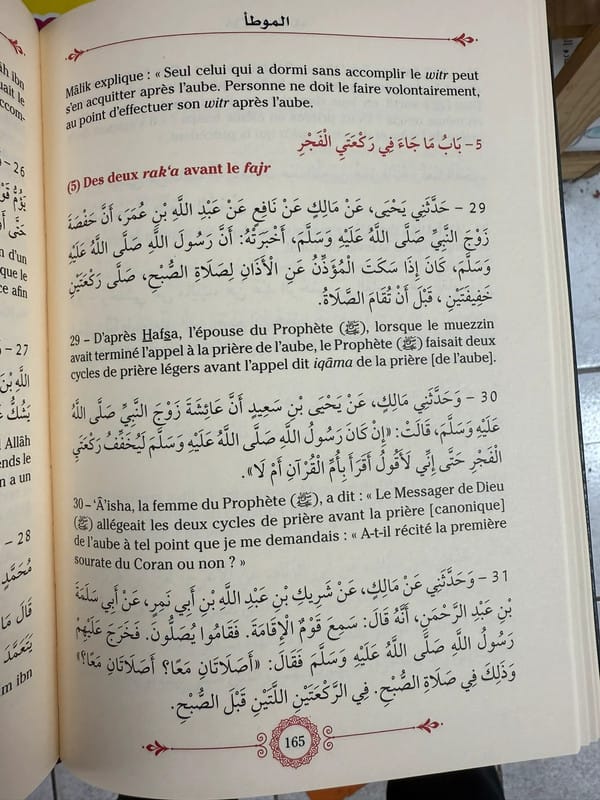 الموطأ
Mâlik explique : « Seul celui qui a dormi sans accomplir le witr peut
s'en acquitter après l'aube. Personne ne doit le faire volontairement,
au point d'effectuer son witr après l'aube.
5- بَابُ مَا جَاءَ فِي رَكْعَتَيِ الْفَجْرِ
(5) Des deux rak‘a avant le fajr
29 – حَدَّثَنِي يَحْيَى، عَنْ مَالِكٍ عَنْ نَافِعٍ عَنْ عَبْدِ اللَّهِ بْنِ عُمَرَ، أَنَّ حَفْصَةَ
زَوْجَ النَّبِيِّ صَلَّى اللَّهُ عَلَيْهِ وَسَلَّمَ، أَخْبَرَتْهُ: أَنَّ رَسُولَ اللَّهِ صَلَّى اللَّهُ عَلَيْهِ
وَسَلَّمَ، كَانَ إِذَا سَكَتَ الْمُؤَذِّنُ عَنِ الْأَذَانِ لِصَلَاةِ الصُّبْحِ، صَلَّى رَكْعَتَيْنِ
خَفِيفَتَيْنِ، قَبْلَ أَنْ تُقَامَ الصَّلَاةُ.
29 – D'après Hafsa, l'épouse du Prophète (ﷺ), lorsque le muezzin
avait terminé l'appel à la prière de l'aube, le Prophète (ﷺ) faisait deux
cycles de prière légers avant l'appel dit iqâma de la prière [de l'aube].
30 – وَحَدَّثَنِي مَالِكٍ، عَنْ يَحْيَى بْنِ سَعِيدٍ أَنَّ عَائِشَةَ زَوْجَ النَّبِيِّ صَلَّى اللَّهُ
عَلَيْهِ وَسَلَّمَ، قَالَتْ: «إِنْ كَانَ رَسُولُ اللَّهِ صَلَّى اللَّهُ عَلَيْهِ وَسَلَّمَ لَيُخَفِّفُ رَكْعَتَيِ
الْفَجْرِ حَتَّى إِنِّي لَأَقُولُ أَقَرَأَ بِأُمِّ الْقُرْآنِ أَمْ لَا».
30 – ‘Â'isha, la femme du Prophète (ﷺ), a dit : « Le Messager de Dieu
(ﷺ) allégeait les deux cycles de prière avant la prière [canonique]
de l'aube à tel point que je me demandais : « A-t-il récité la première
sourate du Coran ou non ? »
31 – وَحَدَّثَنِي عَنْ مَالِكٍ، عَنْ شَرِيكِ بْنِ عَبْدِ اللَّهِ بْنِ أَبِي نَمِرٍ، عَنْ أَبِي سَلَمَةَ
بْنِ عَبْدِ الرَّحْمَنِ، أَنَّهُ قَالَ: سَمِعَ قَوْمٌ الْإِقَامَةَ. فَقَامُوا يُصَلُّونَ. فَخَرَجَ عَلَيْهِمْ
رَسُولُ اللَّهِ صَلَّى اللَّهُ عَلَيْهِ وَسَلَّمَ فَقَالَ: «أَصَلَاتَانِ مَعًا؟ أَصَلَاتَانِ مَعًا؟»
وَذَلِكَ فِي صَلَاةِ الصُّبْحِ. فِي الرَّكْعَتَيْنِ اللَّتَيْنِ قَبْلَ الصُّبْحِ.
165